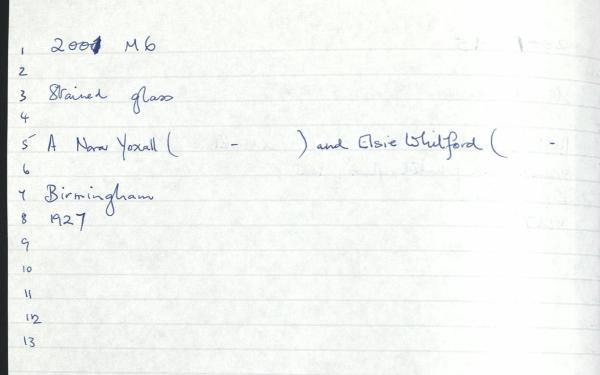 1 2001 M6
2
3 Stained glass
4
5 A Nora Yoxall ( - ) and Elsie Whitford ( -
6
7 Birmingham
8 1927
9
10
11
12
13